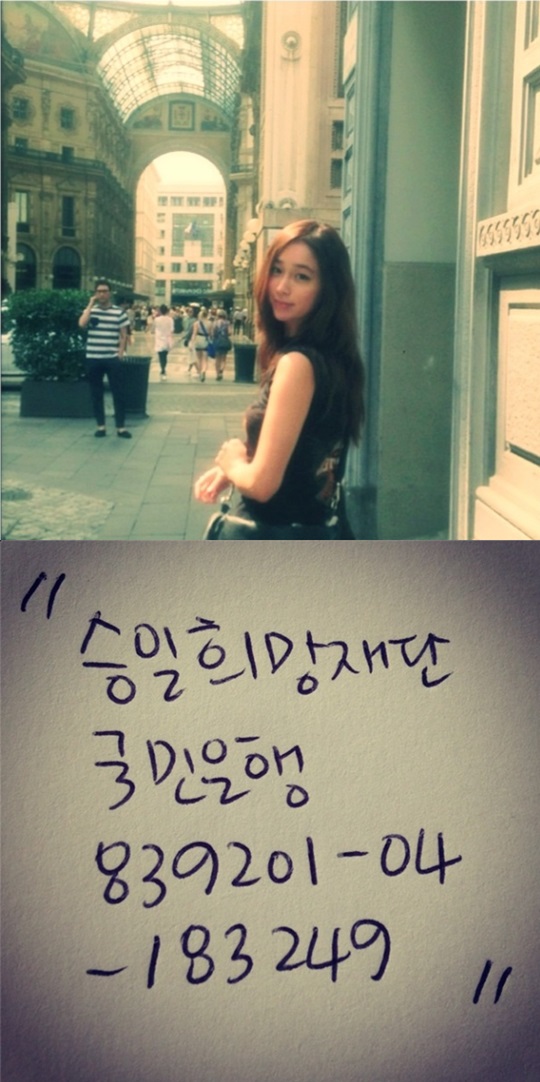 "
승일희망재단
국민은행
839201-04
-183249
"